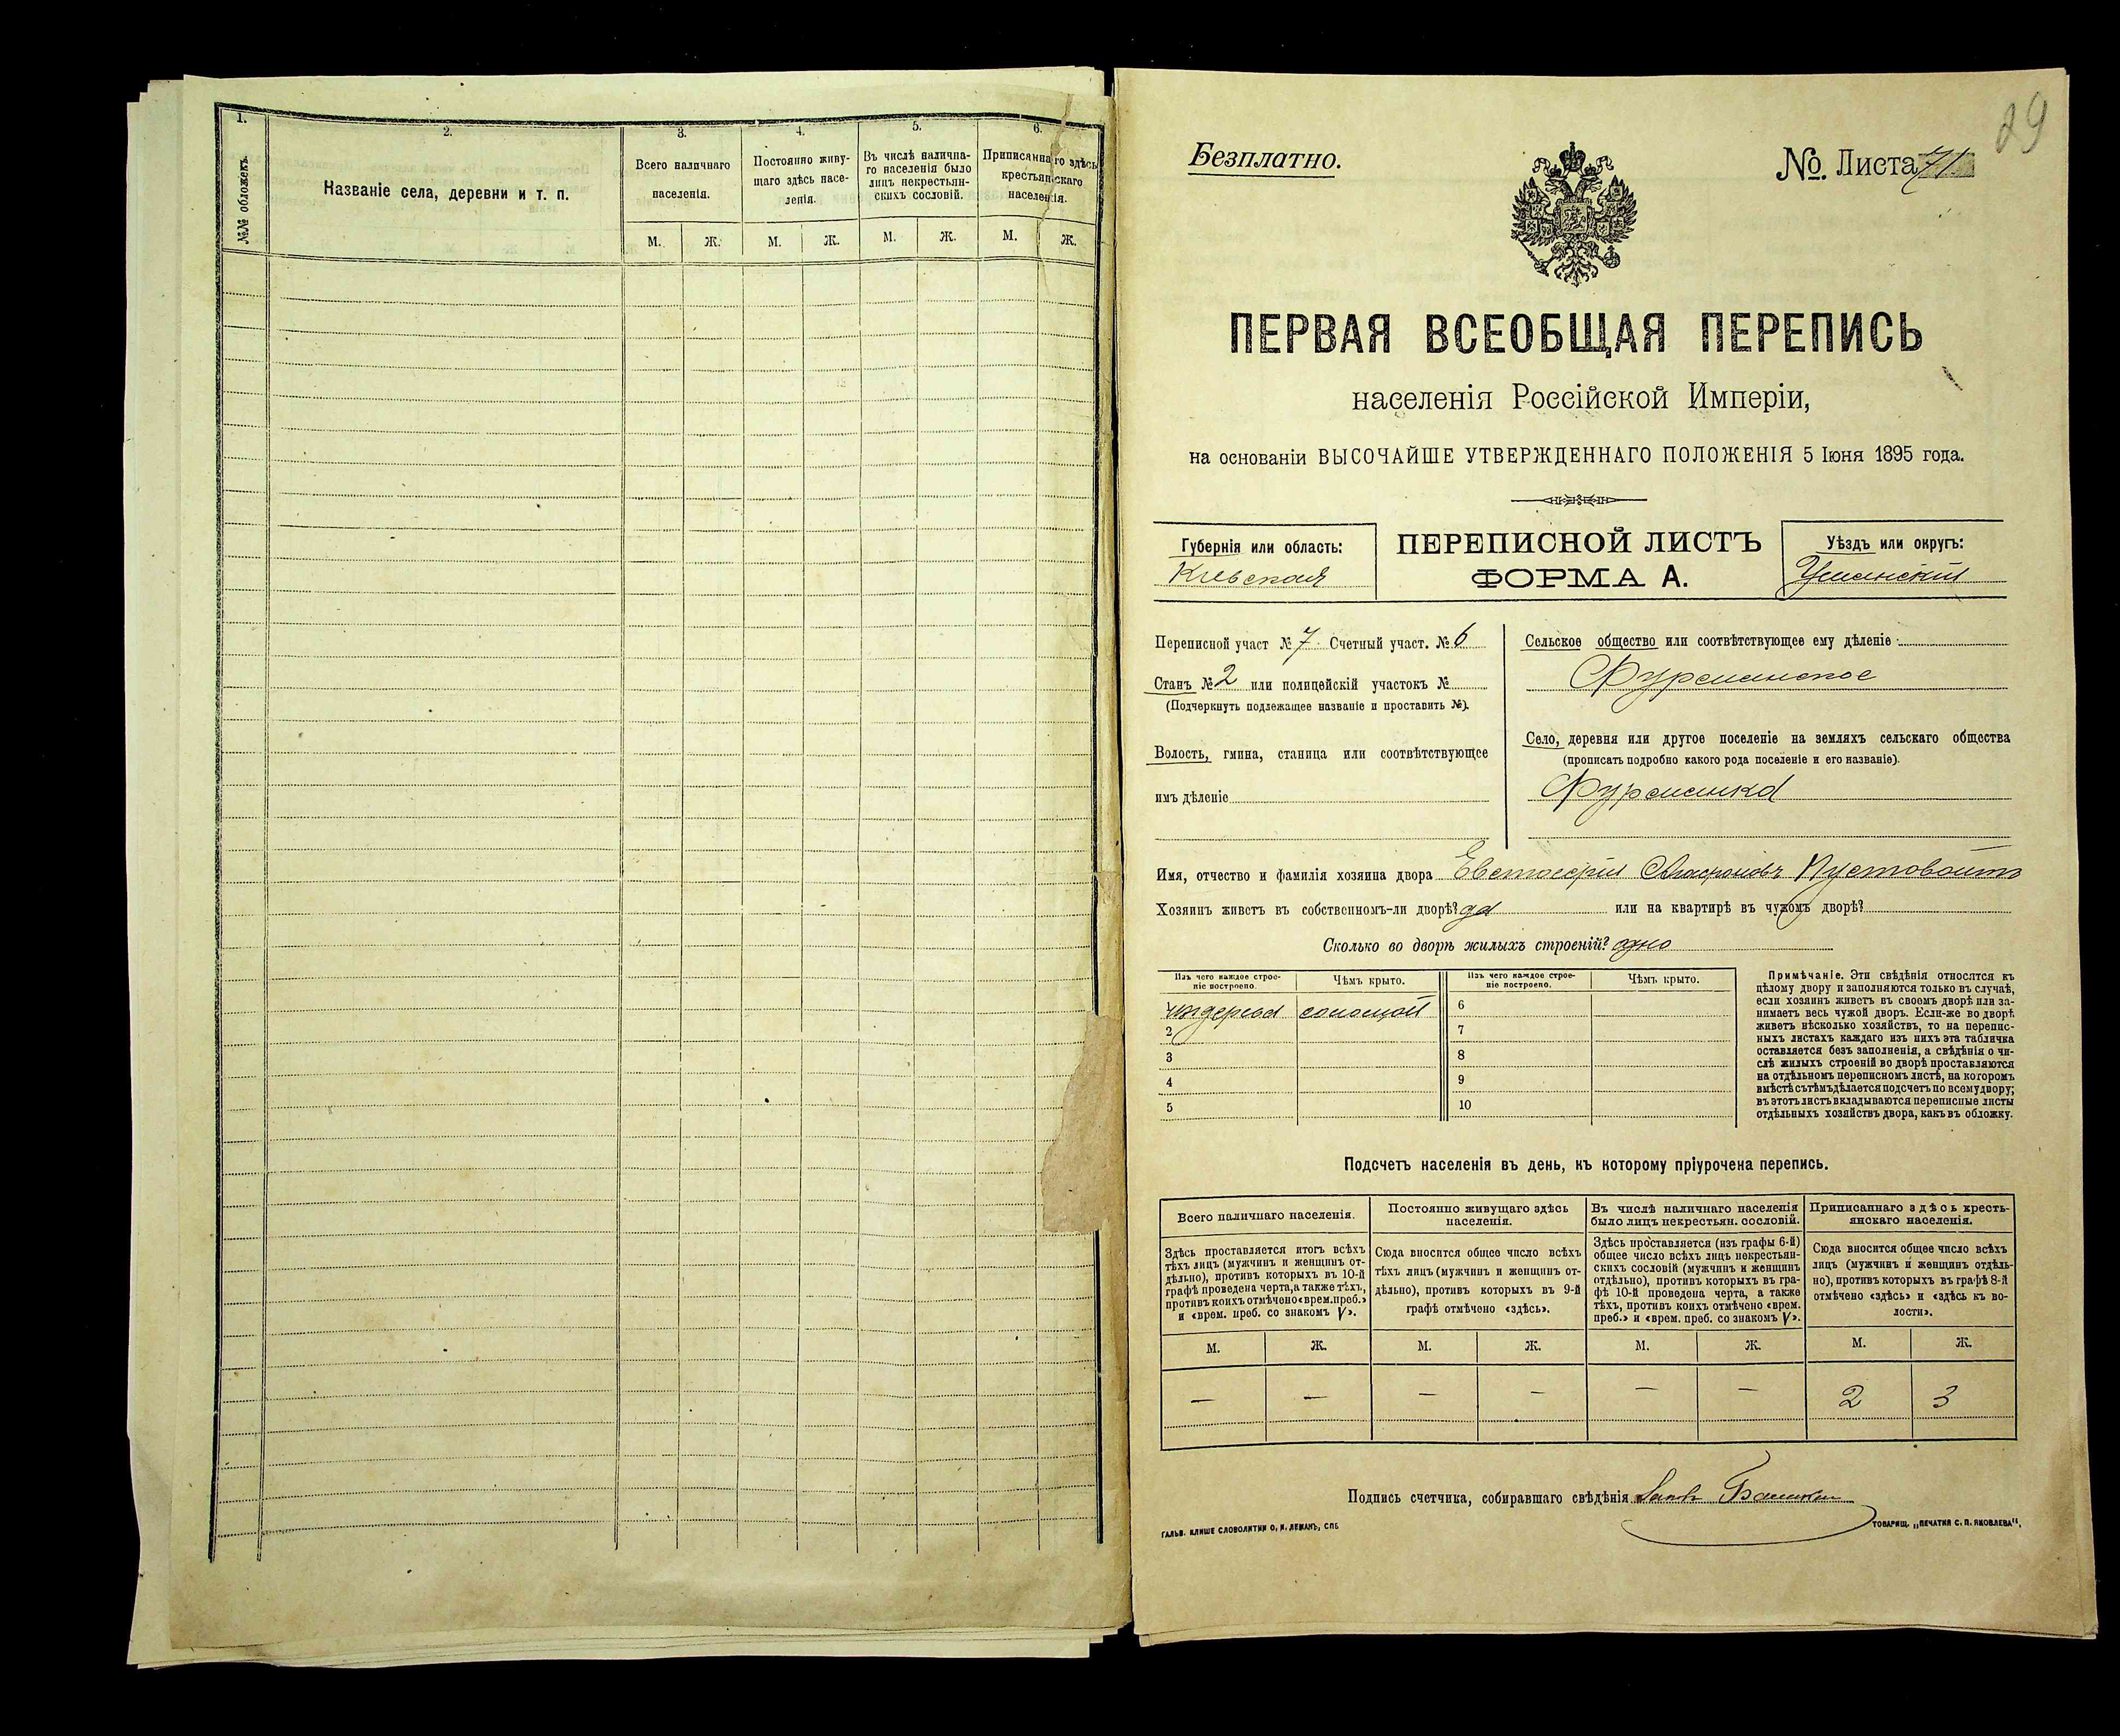 1.
2.
3.
4.
5.
6.
№№ обложекъ.
Названіе села, деревни и т. п.
Всего наличнаго
населенія.
Постоянно живу-
щаго здѣсь насе-
ленія.
Въ числѣ налична-
го населенія было
лицъ некрестьян-
скихъ сословій.
Приписаннаго здѣсь
крестьянскаго
населенія.
М. Ж. М. Ж. М. Ж. М. Ж.
29
Безплатно.
№. Листа 71
ПЕРВАЯ ВСЕОБЩАЯ ПЕРЕПИСЬ
населенія Россійской Имперіи,
на основаніи ВЫСОЧАЙШЕ УТВЕРЖДЕННАГО ПОЛОЖЕНІЯ 5 Іюня 1895 года.
Губернія или область:
Кіевская
ПЕРЕПИСНОЙ ЛИСТЪ
ФОРМА А.
Уѣздъ или округъ:
Уманскій
Переписной участ № 7 Счетный участ. № 6
Станъ № 2 или полицейскій участокъ №
(Подчеркнуть подлежащее названіе и проставить №).
Волость, гмина, станица или соотвѣтствующее
имъ дѣленіе
Сельское общество или соотвѣтствующее ему дѣленіе:
Фурманское
Село, деревня или другое поселеніе на земляхъ сельскаго общества
(прописать подробно какого рода поселеніе и его названіе).
Фурманка
Имя, отчество и фамилія хозяина двора Пустовойтъ
Хозяинъ живетъ въ собственномъ-ли дворѣ? да или на квартирѣ въ чужомъ дворѣ?
Сколько во дворѣ жилыхъ строеній? одно
Изъ чего каждое строе-
ніе построено.
Чѣмъ крыто.
Изъ чего каждое строе-
ніе построено.
Чѣмъ крыто.
издерева соломой
2
3
4
5
6
7
8
9
10
Примѣчаніе. Эти свѣдѣнія относятся къ
цѣлому двору и заполняются только въ случаѣ,
если хозяинъ живетъ въ своемъ дворѣ или за-
нимаетъ весь чужой дворъ. Если-же во дворѣ
живетъ нѣсколько хозяйствъ, то на перепис-
ныхъ листахъ каждаго изъ нихъ эта табличка
оставляется безъ заполненія, а свѣдѣнія о чи-
слѣ жилыхъ строеній во дворѣ проставляются
на отдѣльномъ переписномъ листѣ, на которомъ
вмѣстѣ съ тѣмъ дѣлается подсчетъ по всему двору;
въ этотъ листъ вкладываются переписные листы
отдѣльныхъ хозяйствъ двора, какъ въ обложку.
Подсчетъ населенія въ день, къ которому пріурочена перепись.
Всего наличнаго населенія.
Постоянно живущаго здѣсь
населенія.
Въ числѣ наличнаго населенія
было лицъ некрестьян. сословій.
Приписаннаго здѣсь кресть-
янскаго населенія.
Здѣсь проставляется итогъ всѣхъ
тѣхъ лицъ (мужчинъ и женщинъ от-
дѣльно), противъ которыхъ въ 10-й
графѣ проведена черта, а также тѣхъ,
противъ коихъ отмѣчено «врем. преб.»
и «врем. преб. со знакомъ V».
Сюда вносится общее число всѣхъ
тѣхъ лицъ (мужчинъ и женщинъ от-
дѣльно), противъ которыхъ въ 9-й
графѣ отмѣчено «здѣсь».
Здѣсь проставляется (изъ графы 6-й)
общее число всѣхъ лицъ некрестьян-
скихъ сословій (мужчинъ и женщинъ
отдѣльно), противъ которыхъ въ гра-
фѣ 10-й проведена черта, а также
тѣхъ, противъ коихъ отмѣчено «врем.
преб.» и «врем. преб. со знакомъ V».
Сюда вносится общее число всѣхъ
лицъ (мужчинъ и женщинъ отдѣль-
но), противъ которыхъ въ графѣ 8-й
отмѣчено «здѣсь» и «здѣсь къ во-
лости».
М. Ж. М. Ж. М. Ж. М. Ж.
— — — — — — 2 3
Подпись счетчика, собиравшаго свѣдѣнія
ГАЛЬВ. КЛИШЕ СЛОВОЛИТНИ О. И. ЛЕМАНЪ, СПБ
ТОВАРИЩ. „ПЕЧАТНЯ С. П. ЯКОВЛЕВА“.